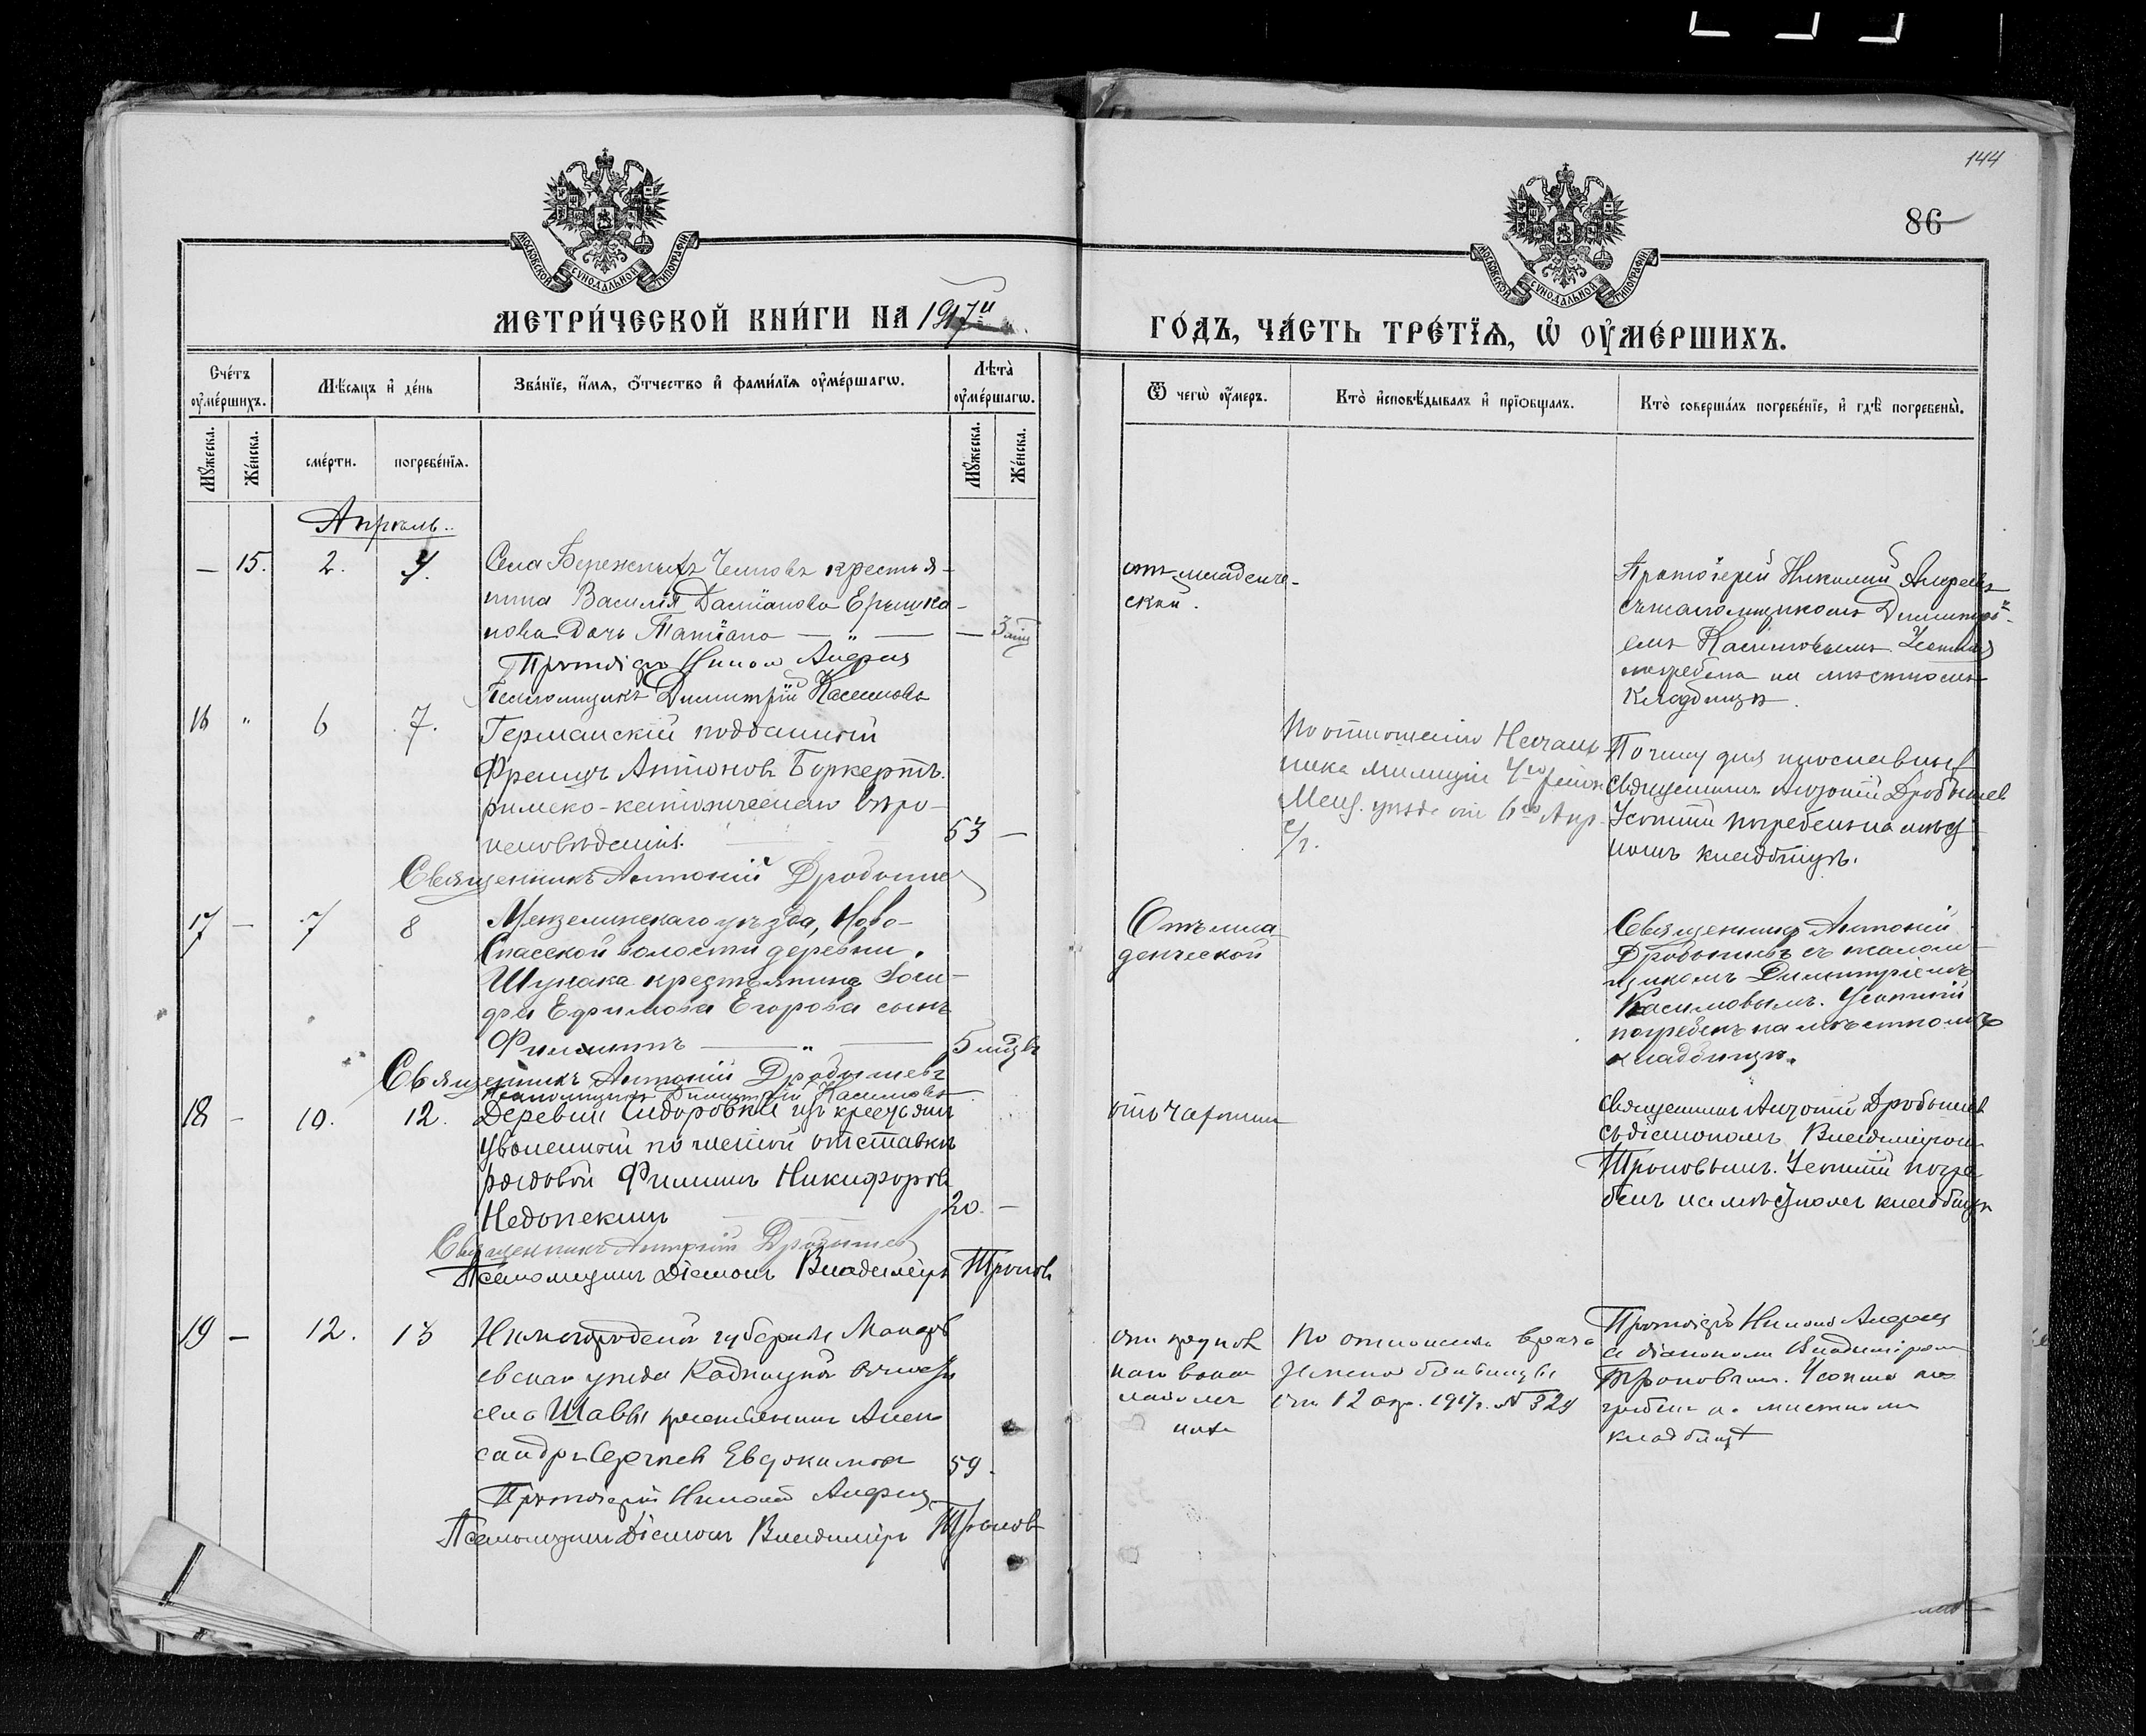 144
86
МОСКОВСКОЙ СѴНОДАЛЬНОЙ ТИПОГРАФІИ
МОСКОВСКОЙ СѴНОДАЛЬНОЙ ТИПОГРАФІИ
МЕТРИ́ЧЕСКОЙ КНИ́ГИ НА 1917й
ГО́ДЪ, ЧА́СТЬ ТРЕ́ТЇѦ, Ѡ҆ ОУ҆МЕ́РШИХЪ.
Сче́тъ оу҆ме́ршихъ.
Мѣ́сяцъ и҆ де́нь
Зва́нїе, и҆́мѧ, ѻ҆́тчество и҆ фами́лїѧ оу҆ме́ршагѡ.
Лѣта̀ оу҆ме́ршагѡ.
Ѿ чегѡ̀ оу҆́меръ.
Кто̀ и҆сповѣ́дывалъ и҆ прїѻбща́лъ.
Кто̀ соверша́лъ погребе́нїе, и҆ гдѣ̀ погребены̀.
Мꙋ́жеска.
Же́нска.
сме́рти.
погребе́нїѧ.
Мꙋ́жеска.
Же́нска.
Апрѣль
— 15. 2. 4.
Села Бережныхъ Челновъ крестья-
нина Василія Даміанова Ерыкка-
нова дочь Татіана — " — — 3 мѣс
Протоіерей Николай Андреев
Псаломщикъ Димитрій Касимовъ
отъ младенче-
ской.
Протоіерей Николай Андреевъ
съ псаломщикомъ Димитрі-
емъ Касимовымъ Усопшая
погребена на мѣстномъ
кладбищѣ.
16 " 6 7.
Германскій подданный
Францъ Антоновъ Боркертъ.
римско-католическаго вѣро-
исповѣданія. 53 —
Священникъ Антоній Дробышев
По отношенію Началь-
ника милиціи 4го район
Менз. уѣзда отъ 6го Апр.
с/г.
По чину для инославныхъ
священникъ Антоній Дробышев
Усопшій погребенъ на мѣст
номъ кладбищѣ.
17 — 7 8
Мензелинскаго уѣзда, Ново-
Спасской волости деревни
Шунака крестьянина
Ефимова Егорова сынъ
Филиппъ — " — 5 мѣсцъ
Священникъ Антоній Дробышевъ
Псаломщикъ Димитрій Касимовъ
Отъ мла-
денческой
Священникъ Антоній
Дробышевъ съ псалом-
щикомъ Димитріемъ
Касимовымъ. Усопшій
погребенъ на мѣстномъ
кладбищѣ.
18 — 10. 12.
Деревни Сидоровки изъ крестьянъ
уволенный по чистой отставкѣ
рядовой Филиппъ Никифоровъ
Недопекинъ 20. —
Священникъ Антоній Дробышев
Псаломщикъ Діаконъ Владиміръ Троновъ
отъ чахотки
Священникъ Антоній Дробышев
съ діакономъ Владиміромъ
Троновымъ. Усопшій погре
бенъ на мѣстномъ кладбищѣ
19 — 12. 13
Нижегородской губерніи Макарь
евскаго уѣзда Кадницкой волости
села Шавы крестьянинъ Алек
сандръ Сергѣев Евдокимов 59.
Протоіерей Николай Андреев
Псаломщикъ Діаконъ Владиміръ Троновъ
отъ крупоз
наго воспа
ленія лег
кихъ
По отношенію врача
Земской больницы
отъ 12 апр. 1917г. № 324
Протоіерей Николай Андреев
съ діакономъ Владиміромъ
Троновым. Усопшій по
гребенъ на мѣстномъ
кладбищѣ